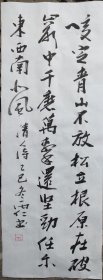 咬定青山不放松立根原在破
岩中千磨萬擊還坚劲任尔
東西南北風 清詩 乙巳冬 书